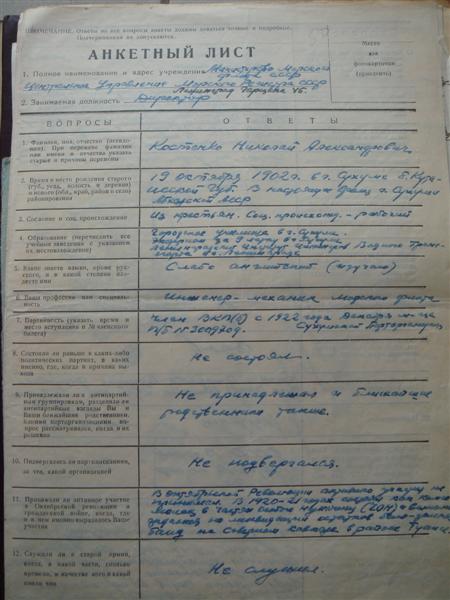 ПРИМЕЧАНИЕ. Ответы на все вопросы анкеты должны даваться точные и подробные.
Подчеркивания не допускаются.
АНКЕТНЫЙ ЛИСТ
Место
для
фотокарточки
(приклеить)
1. Полное наименование и адрес учреждения Министерство Морского
флота СССР
Центральное Управление Морского Регистра СССР
Ленинград
2. Занимаемая должность Директор
ВОПРОСЫ
ОТВЕТЫ
1. Фамилия, имя, отчество
Костенко Николай Александрович
2. Время и место рождения старого
(губ., уезд, волость и деревня)
и нового (обл., край, район и след.
районирования
19 октября 1902 г. в г. Сухуме б. Кута-
исской губ. В настоящее время г. Сухуми
СССР
3. Сословие и соц. происхождение
Из крестьян. Соц. происхожд. - рабочий
4. Образование (перечислить все
учебные заведения с указанием
их местонахождения)
Городское училище в г. Сухуми.
Институт Инженеров Водного Транс-
порта
5. Какие знаете языки, кроме рус-
ского, и в какой степени вла-
деете ими
Слабо английский (изучаю)
6. Ваша профессия или специаль-
ность
Инженер-механик морского флота
7. Партийность (указать время и
место вступления и № членского
билета)
Член ВКП(б) с 1922 года Декабря м-ца
П/б № Сухумской Парторганизац.
8. Состояли ли раньше в каких-либо
политических партиях, в каких
именно, где, когда и причина вы-
хода
Не состоял.
9. Принадлежали ли к антипартий-
ным группировкам, разделяли ли
антипартийные взгляды Вы и
Ваши ближайшие родственники.
Какими парторганизациями во-
прос рассматривался, когда и их
решения
Не принадлежал и ближайшие
родственники также.
10. Подвергались ли партвзысканиям,
за что, какой организацией
Не подвергался.
11. Принимали ли активное участие
в Октябрьской революции и
гражданской войне, когда, где
и в чем именно выразилось Ваше
участие
В Октябрьской Революции активного участия не
принимал. В 1920-21
в частях особого назначения (ЧОН)
на ликвидации остатков
банд на северном Кавказе в районе Туапсе.
12. Служили ли в старой армии,
когда, в какой части, сколько
времени, в качестве кого и какой
имели чин
Не служил.